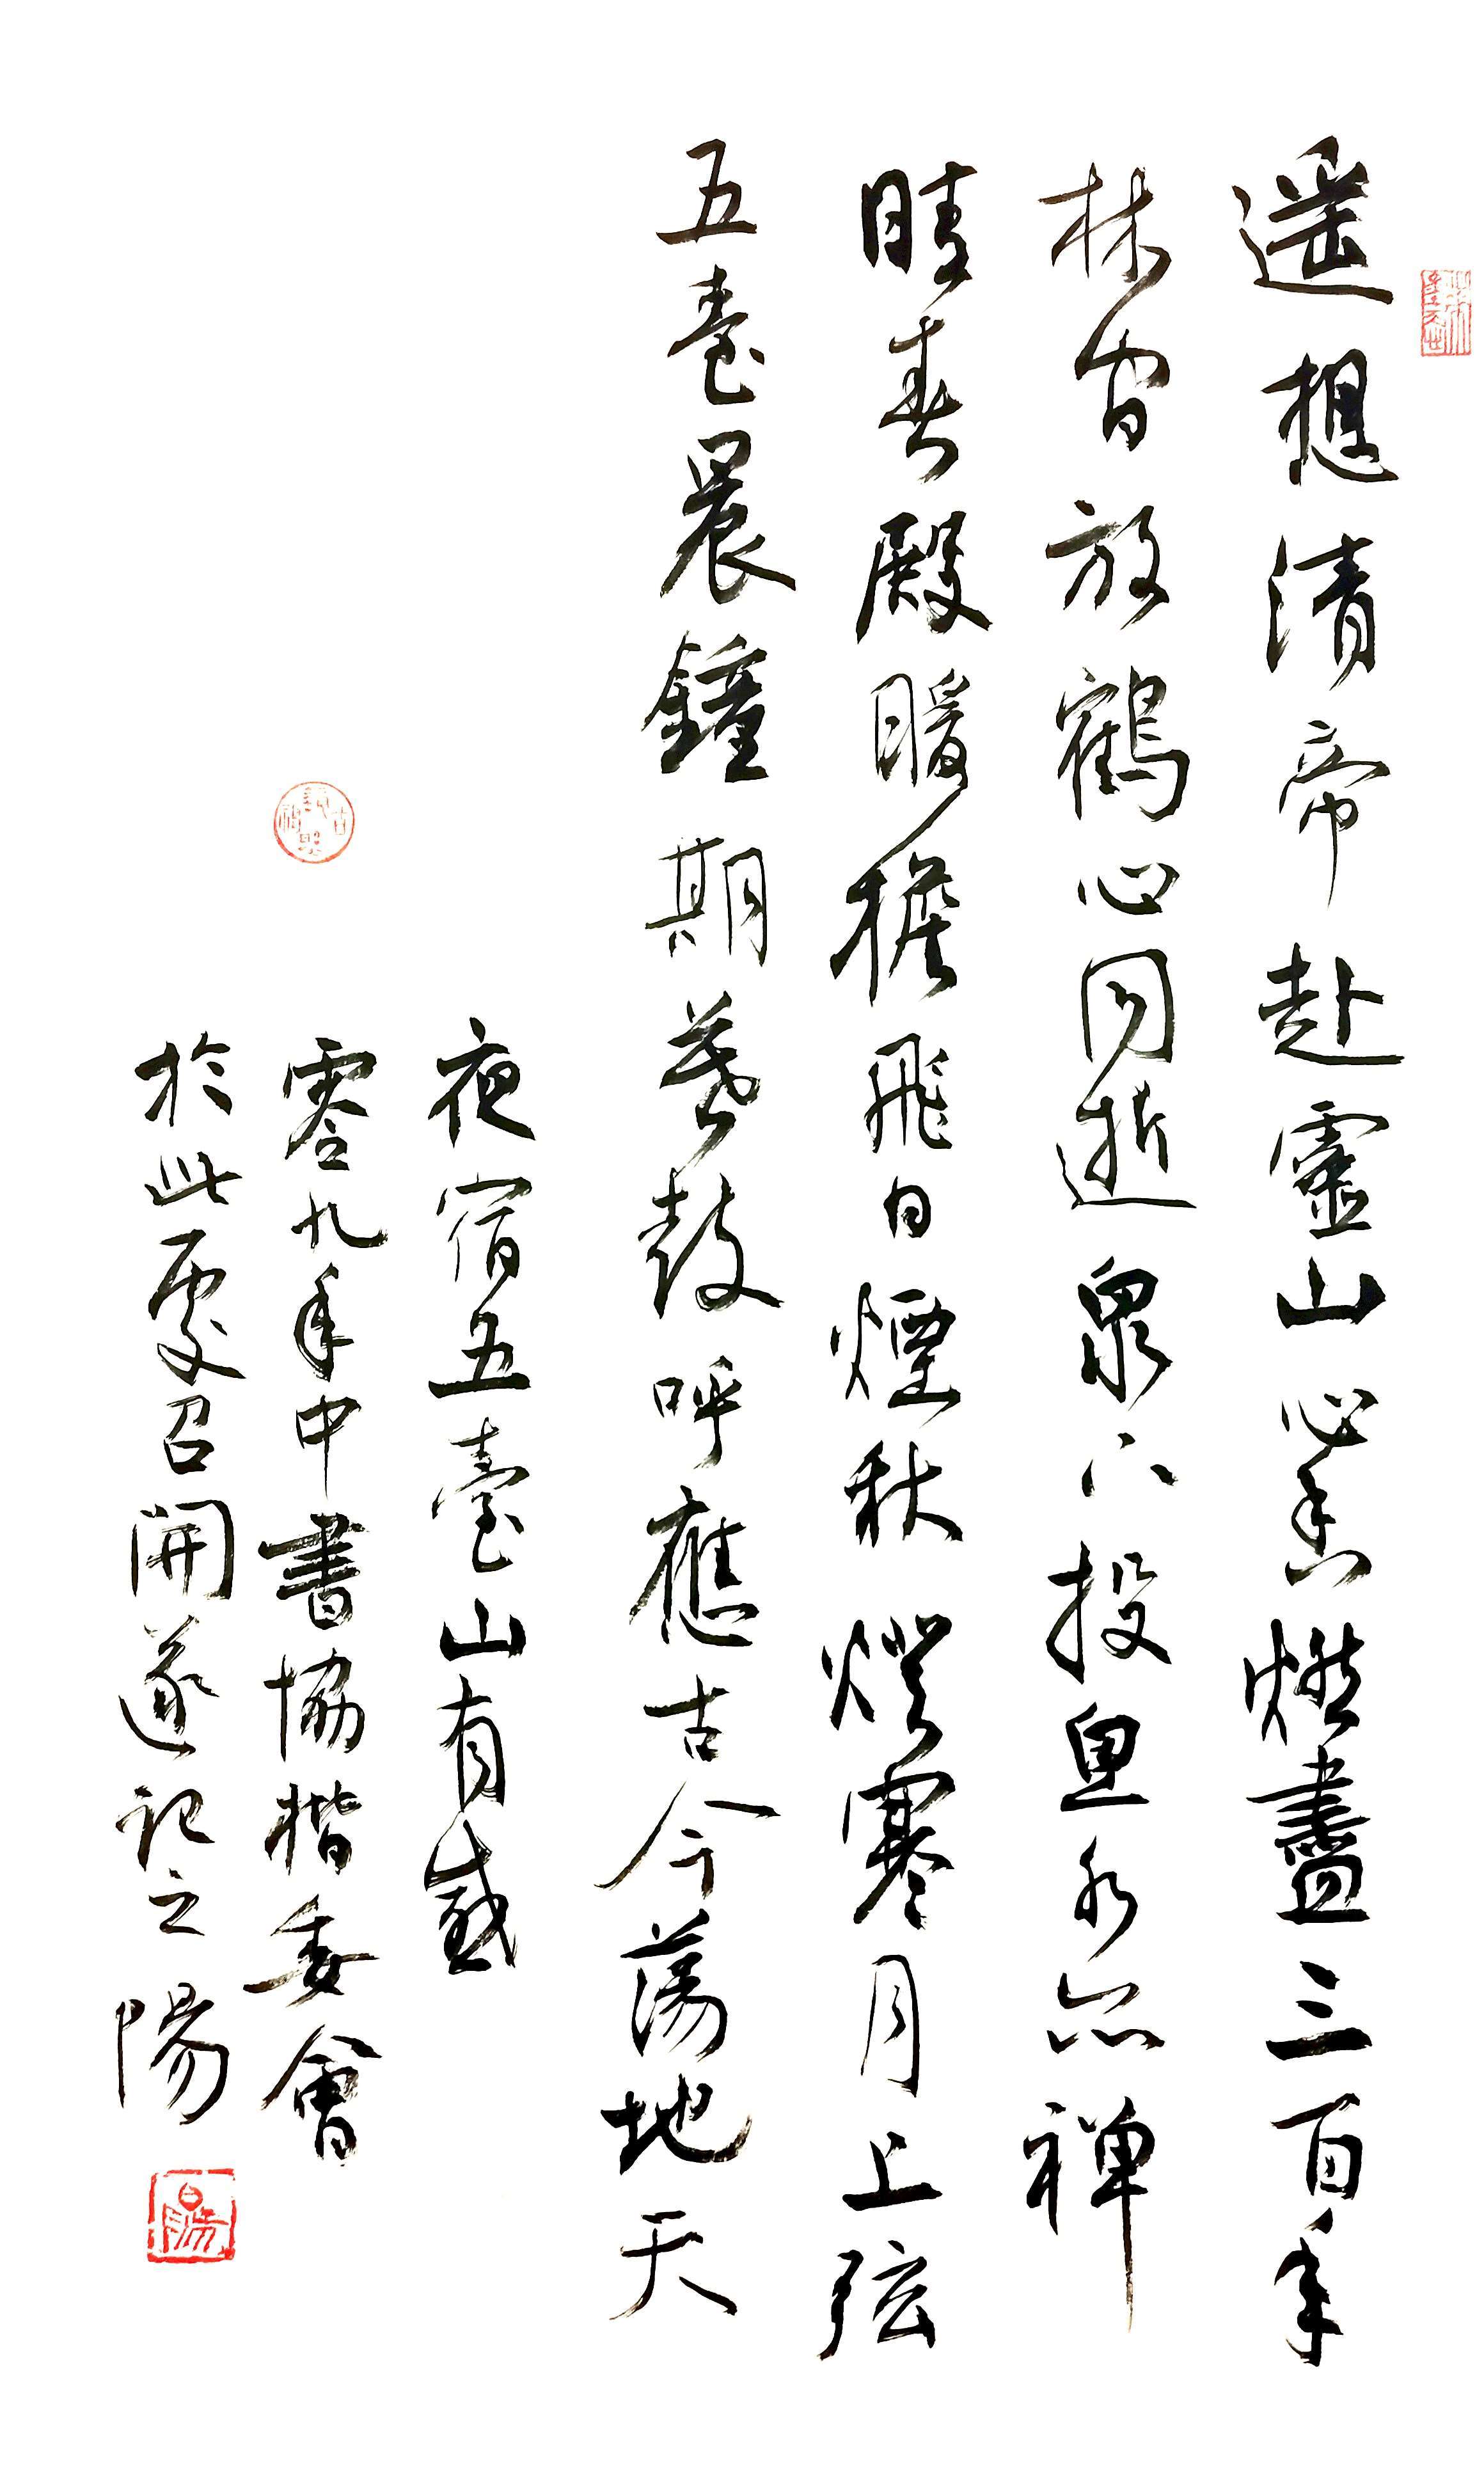 遥想清帝赴靈山心香燃盡三百年
林間放鶴心同逝泉下投魚水亦禪
晴春殿暖檐飛日煙秋燈寒月上弦
五臺晨鐘期暮鼓呼應古今蕩地天
夜宿五臺山有感
零九年中書協楷委會
於此處召開遂記之陽